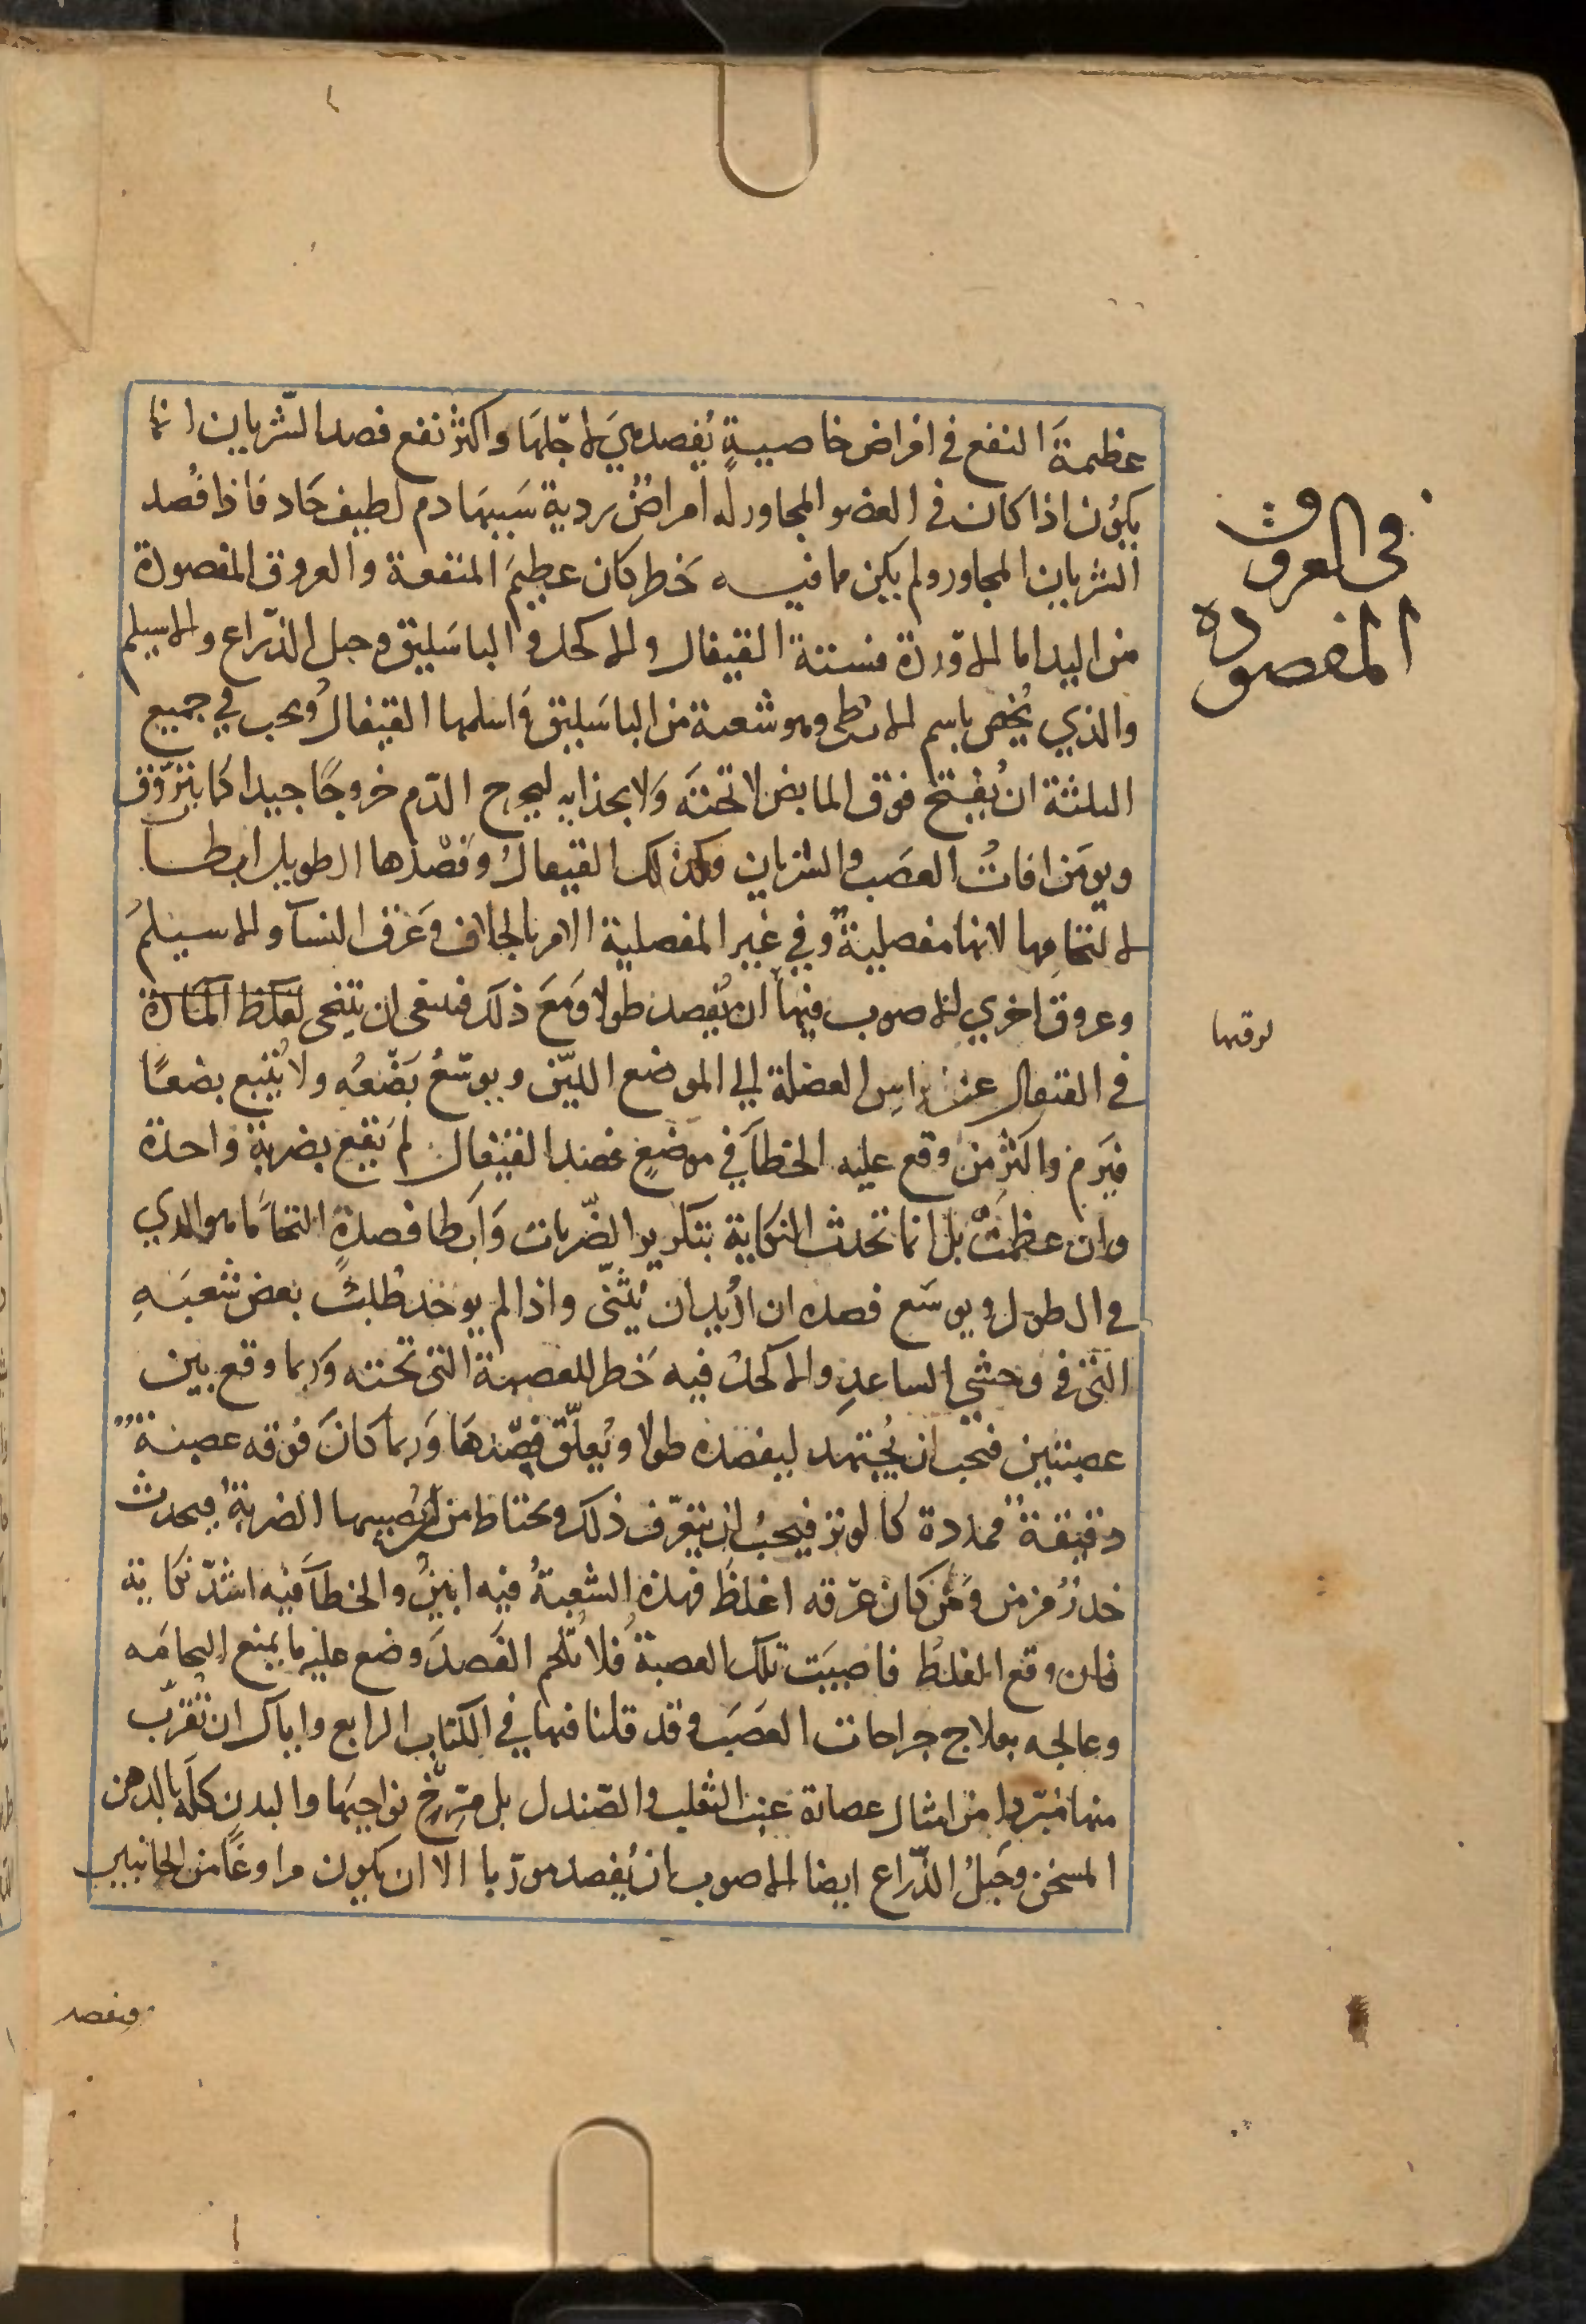 عظيمة النفع في امراض خاصية يُفصد هي لاجلها واكثر نفع فصد الشريان انما
يكون اذا كان في العضو المجاور له امراض ردية سببها دم لطيف حاد فاذا فُصد
الشريان المجاور ولم يكن مما فيه خطر كان عظيم المنفعة والعروق المفصودة
من اليد اما الاوردة فستة القيفال والاكحل والباسليق وحبل الذّراع والاسيلم
والذي يُخص باسم الابطي وهو شعبة من الباسليق واسلمها القيفال ويجب في جميع
الثلثة ان يُفتح فوق المابض لا تحته ولا بحذايه ليخرج الدّم خروجًا جيدا كما يتروّق
ويومن افات العصب والشريان وكذلك القيفال وفصدها الطويل ابطا
لالتحامها لانها مفصلية وفي غير المفصلية الامر بالخلاف وعرق النسا والاسيلم
وعروق اخري الاصوب فيها ان يُفصد طولا ومع ذلك فينبغي ان يتنحى لغلظ المادة
في القيفال عن راس العضلة الي الموضع الليّن ويوسّع بضعه ولا يُتبع بضعًا
فيرم واكثر من وقع عليه الخطا في موضع فصد القيفال لم يقع بضربة واحدة
وان عظمت بل انما تحدث النكاية بتكرير الضّربات وابطا فصدة التحاما هو الذي
في الطول ويوسّع فصده ان اُريد ان يُثنّى واذا لم يوخذ طُلبت بعض شعبه
التى في وحشي الساعد والاكحل فيه خطر للعصبة التى تحته وربما وقع بين
عصبتين فيجب ان يُجتهد ليفصده طولا ويُعلّق فصدها وربما كان فوقه عصبة
دقيقة ممدّدة كالوتر فيجب ان يتعرّف ذلك ويحتاط من ان يصيبها الضربة فيحدث
خدر مزمن ومن كان عرقه اغلظ فهذه الشعبة فيه ابين والخطا فيه اشدّ نكاية
فان وقع الغلط فاصيبت تلك العصبة فلا تُلحم الفصد وضع عليه ما يمنع التحامه
وعالجه بعلاج جراحات العصب وقد قلنا فيها في الكتاب الرابع واياك ان تقرّب
منها مُبرّدا من امثال عصارة عنب الثعلب والصّندل بل مَرّخ نواحيها والبدن كله بالدهن
المسخن وحبل الذّراع ايضا الاصوب ان يُفصد مورّبا الا ان يكون مراوغًا من الجانبين
في العروق
المفصوده
لوقتها
فيفصد